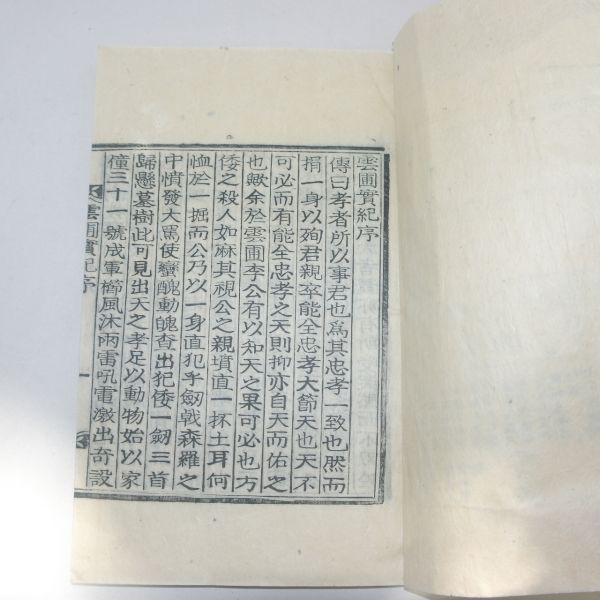 雲圃實紀序
傳曰孝者所以事君也爲其忠孝一致也然而
捐一身以殉君親卒能全忠孝大節天也天不
可必而有能全忠孝之天則抑亦自天而佑之
也歟余於雲圃李公有以知天之果可必也方
倭之殺人如麻其視公之親墳直一抔土耳何
恤於一掘而公乃以一身直犯乎劒戟森羅之
中憤發大罵使蠻醜動魄查出犯倭一劒三首
歸懸墓樹此可見出天之孝足以動物始以家
僮三十一號成軍櫛風沐雨雷吼電激出奇設
雲圃實紀序
一